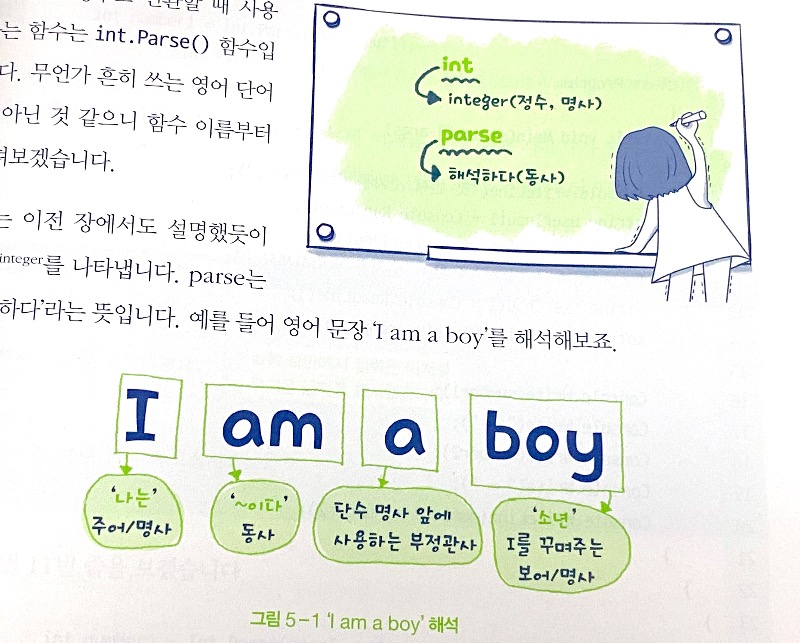 때 사용
는 함수는 int.Parse() 함수입
다. 무언가 흔히 쓰는 영어 단어
아닌 것 같으니 함수 이름부터
겠습니다.
는 이전 장에서도 설명했듯이
integer를 나타냅니다. parse는
하다'라는 뜻입니다. 예를 들어 영어 문장 'I am a boy'를 해석해보죠.
int
integer(정수, 명사)
parse
해석하다(동사)
I am a boy
'나는'
주어/명사
'~이다'
동사
단수 명사 앞에
사용하는 부정관사
'소년'
I를 꾸며주는
보어/명사
그림 5-1 'I am a boy' 해석